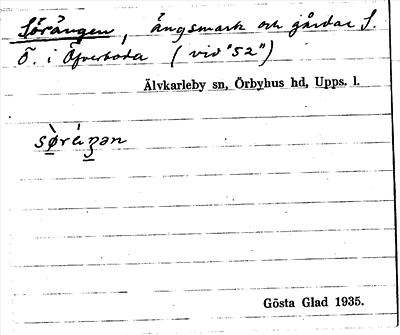 Sörängen, ängsmark och gårdar S.
Ö. i Överboda (vid "52")
Älvkarleby sn, Örbyhus hd, Upps. l.
Gösta Glad 1935.